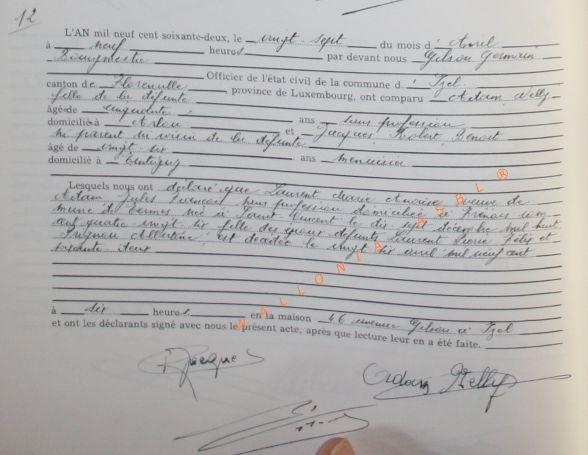 12
L'AN mil neuf cent soixante-deux, le vingt-sept du mois d'Avril
à neuf heures par devant nous Gilson Germain
Bourgmestre
Officier de l'état civil de la commune d'Izel
canton de Florenville province de Luxembourg, ont comparu Adam Nelly
fille de la défunte
âgé de cinquante ans sans profession
domicilié à Arlon et Jacques Robert Benoit
ni parent ni voisin de la défunte
âgé de vingt-six ans menuisier
domicilié à Tintigny
Lesquels nous ont déclaré que Laurent Marie veuve de
Adam Jules François sans profession domiciliée à com-
mune de née à Saint Vincent le dix-sept décembre mil huit
cent quatre-vingt-six fille des époux défunts Laurent Pierre Félix et
est décédée le vingt-six avril mil neuf cent
soixante deux
à dix heures en la maison 46 avenue Gilson à Izel
et ont les déclarants signé avec nous le présent acte, après que lecture leur en a été faite.
Jacques
Adam Nelly
WALLONIA ASBL ®